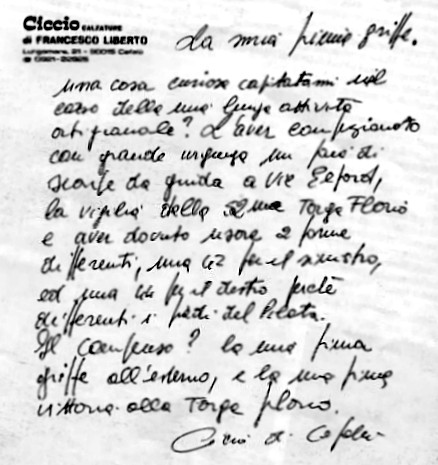 Ciccio CALZATURE
di FRANCESCO LIBERTO
Lungomare, 21 - 90015 Cefalù
☎ 0921-20926
La mia prima griffe.
una cosa curiosa capitatami nel
corso della mia lunga attività
artigianale? L'aver confezionato
con grande urgenza un paio di
scarpe da guida a Vic Elford,
la vigilia della 52ma Targa Florio
e aver dovuto usare 2 forme
differenti, una 42 per il sinistro,
ed una 44 per il destro perché
differenti i piedi del Pilota.
Il compenso? la mia prima
griffe all'esterno, e la mia prima
vittoria alla Targa Florio.
Ciccio di Cefalù